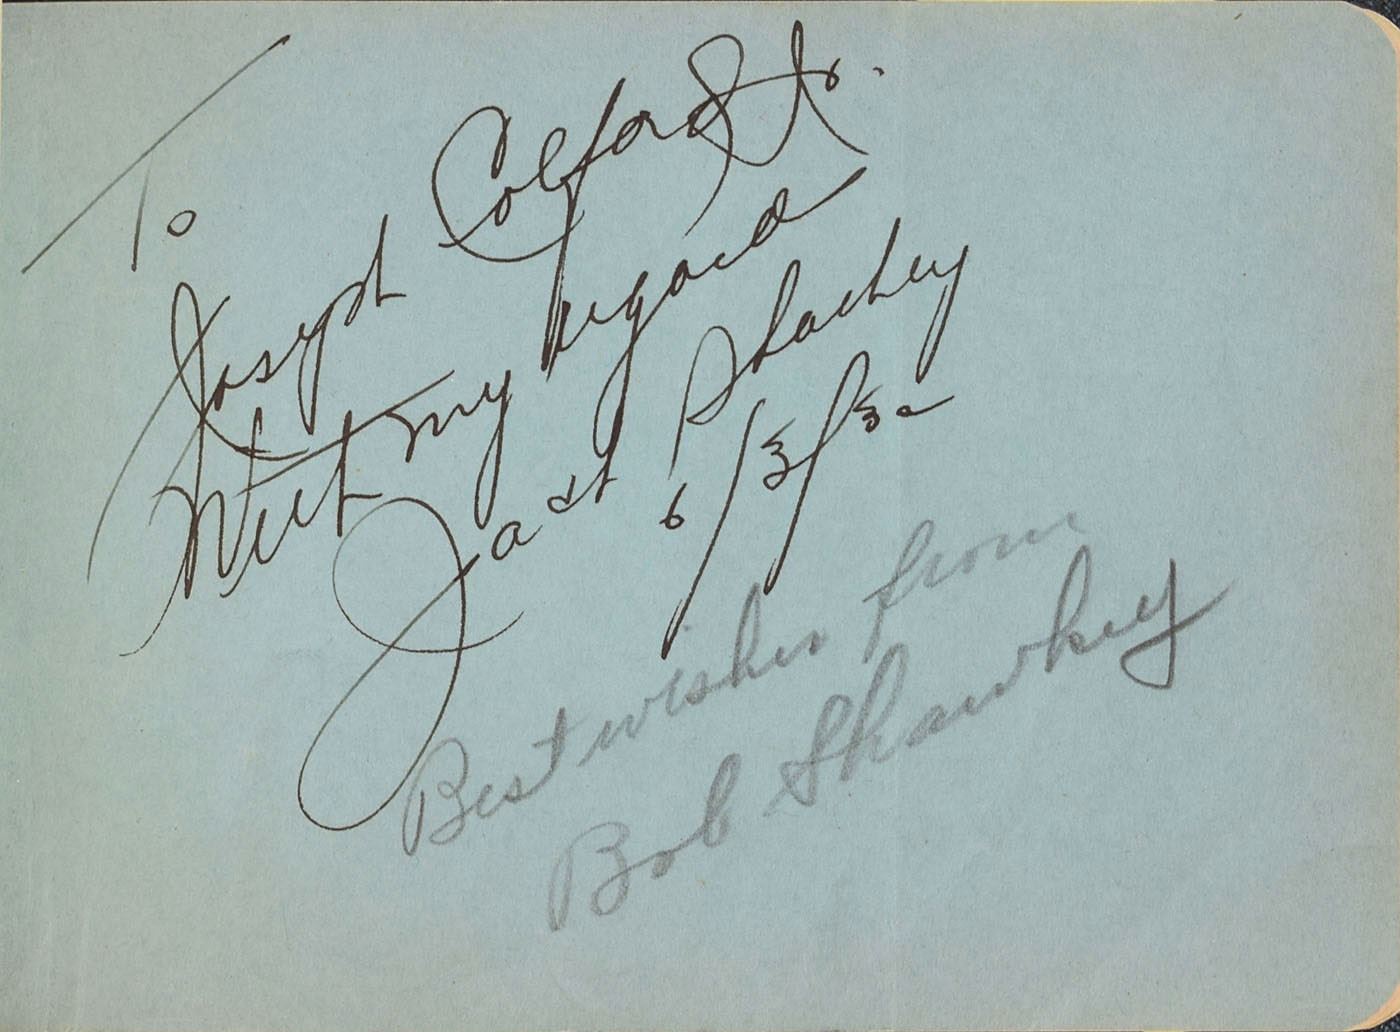 To
Joseph Colford Jr.
With my regard
Jack Sharkey
6/3/32
Best wishes from
Bob Shawkey